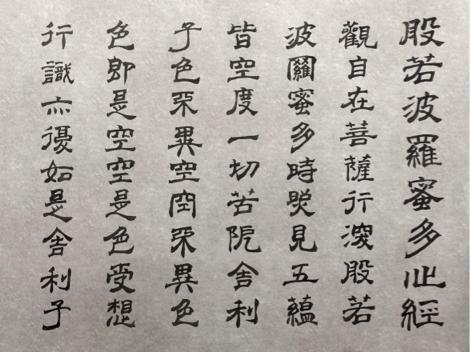 般若波羅蜜多心經
觀自在菩薩行深般若
波羅蜜多時照見五蘊
皆空度一切苦阨舍利
子色不異空空不異色
色即是空空是色受想
行識亦復如是舍利子